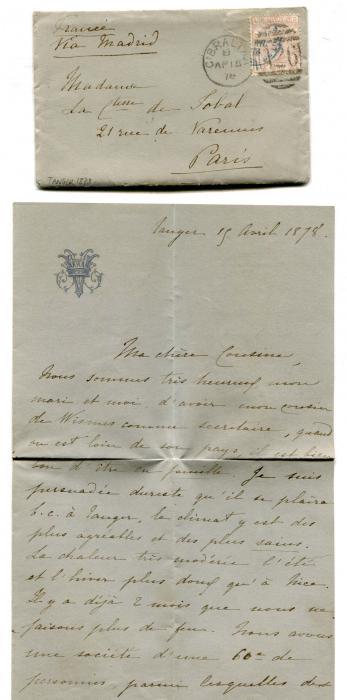 France
Via Madrid
Madame
La Ctesse de Sobat
21 rue de Varennes
Paris
TANGER 1878
GIBRALTAR
AP 15
78
Tanger 15 Avril 1878.
Ma chère Cousine,
Nous sommes très heureux mon
mari et moi d'avoir mon cousin
de Wismes comme secrétaire, quand
on est loin de son pays, il est bien
bon d'être en famille. Je suis
persuadée du reste qu'il se plaira
b.c. à Tanger, le climat y est des
plus agréables et des plus sains.
La chaleur très modérée l'été
et l'hiver plus doux qu'à Nice.
Il y a déjà 2 mois que nous ne
faisons plus de feu. Nous avons
une société d'une 60ne de
personnes, parmi lesquelles des